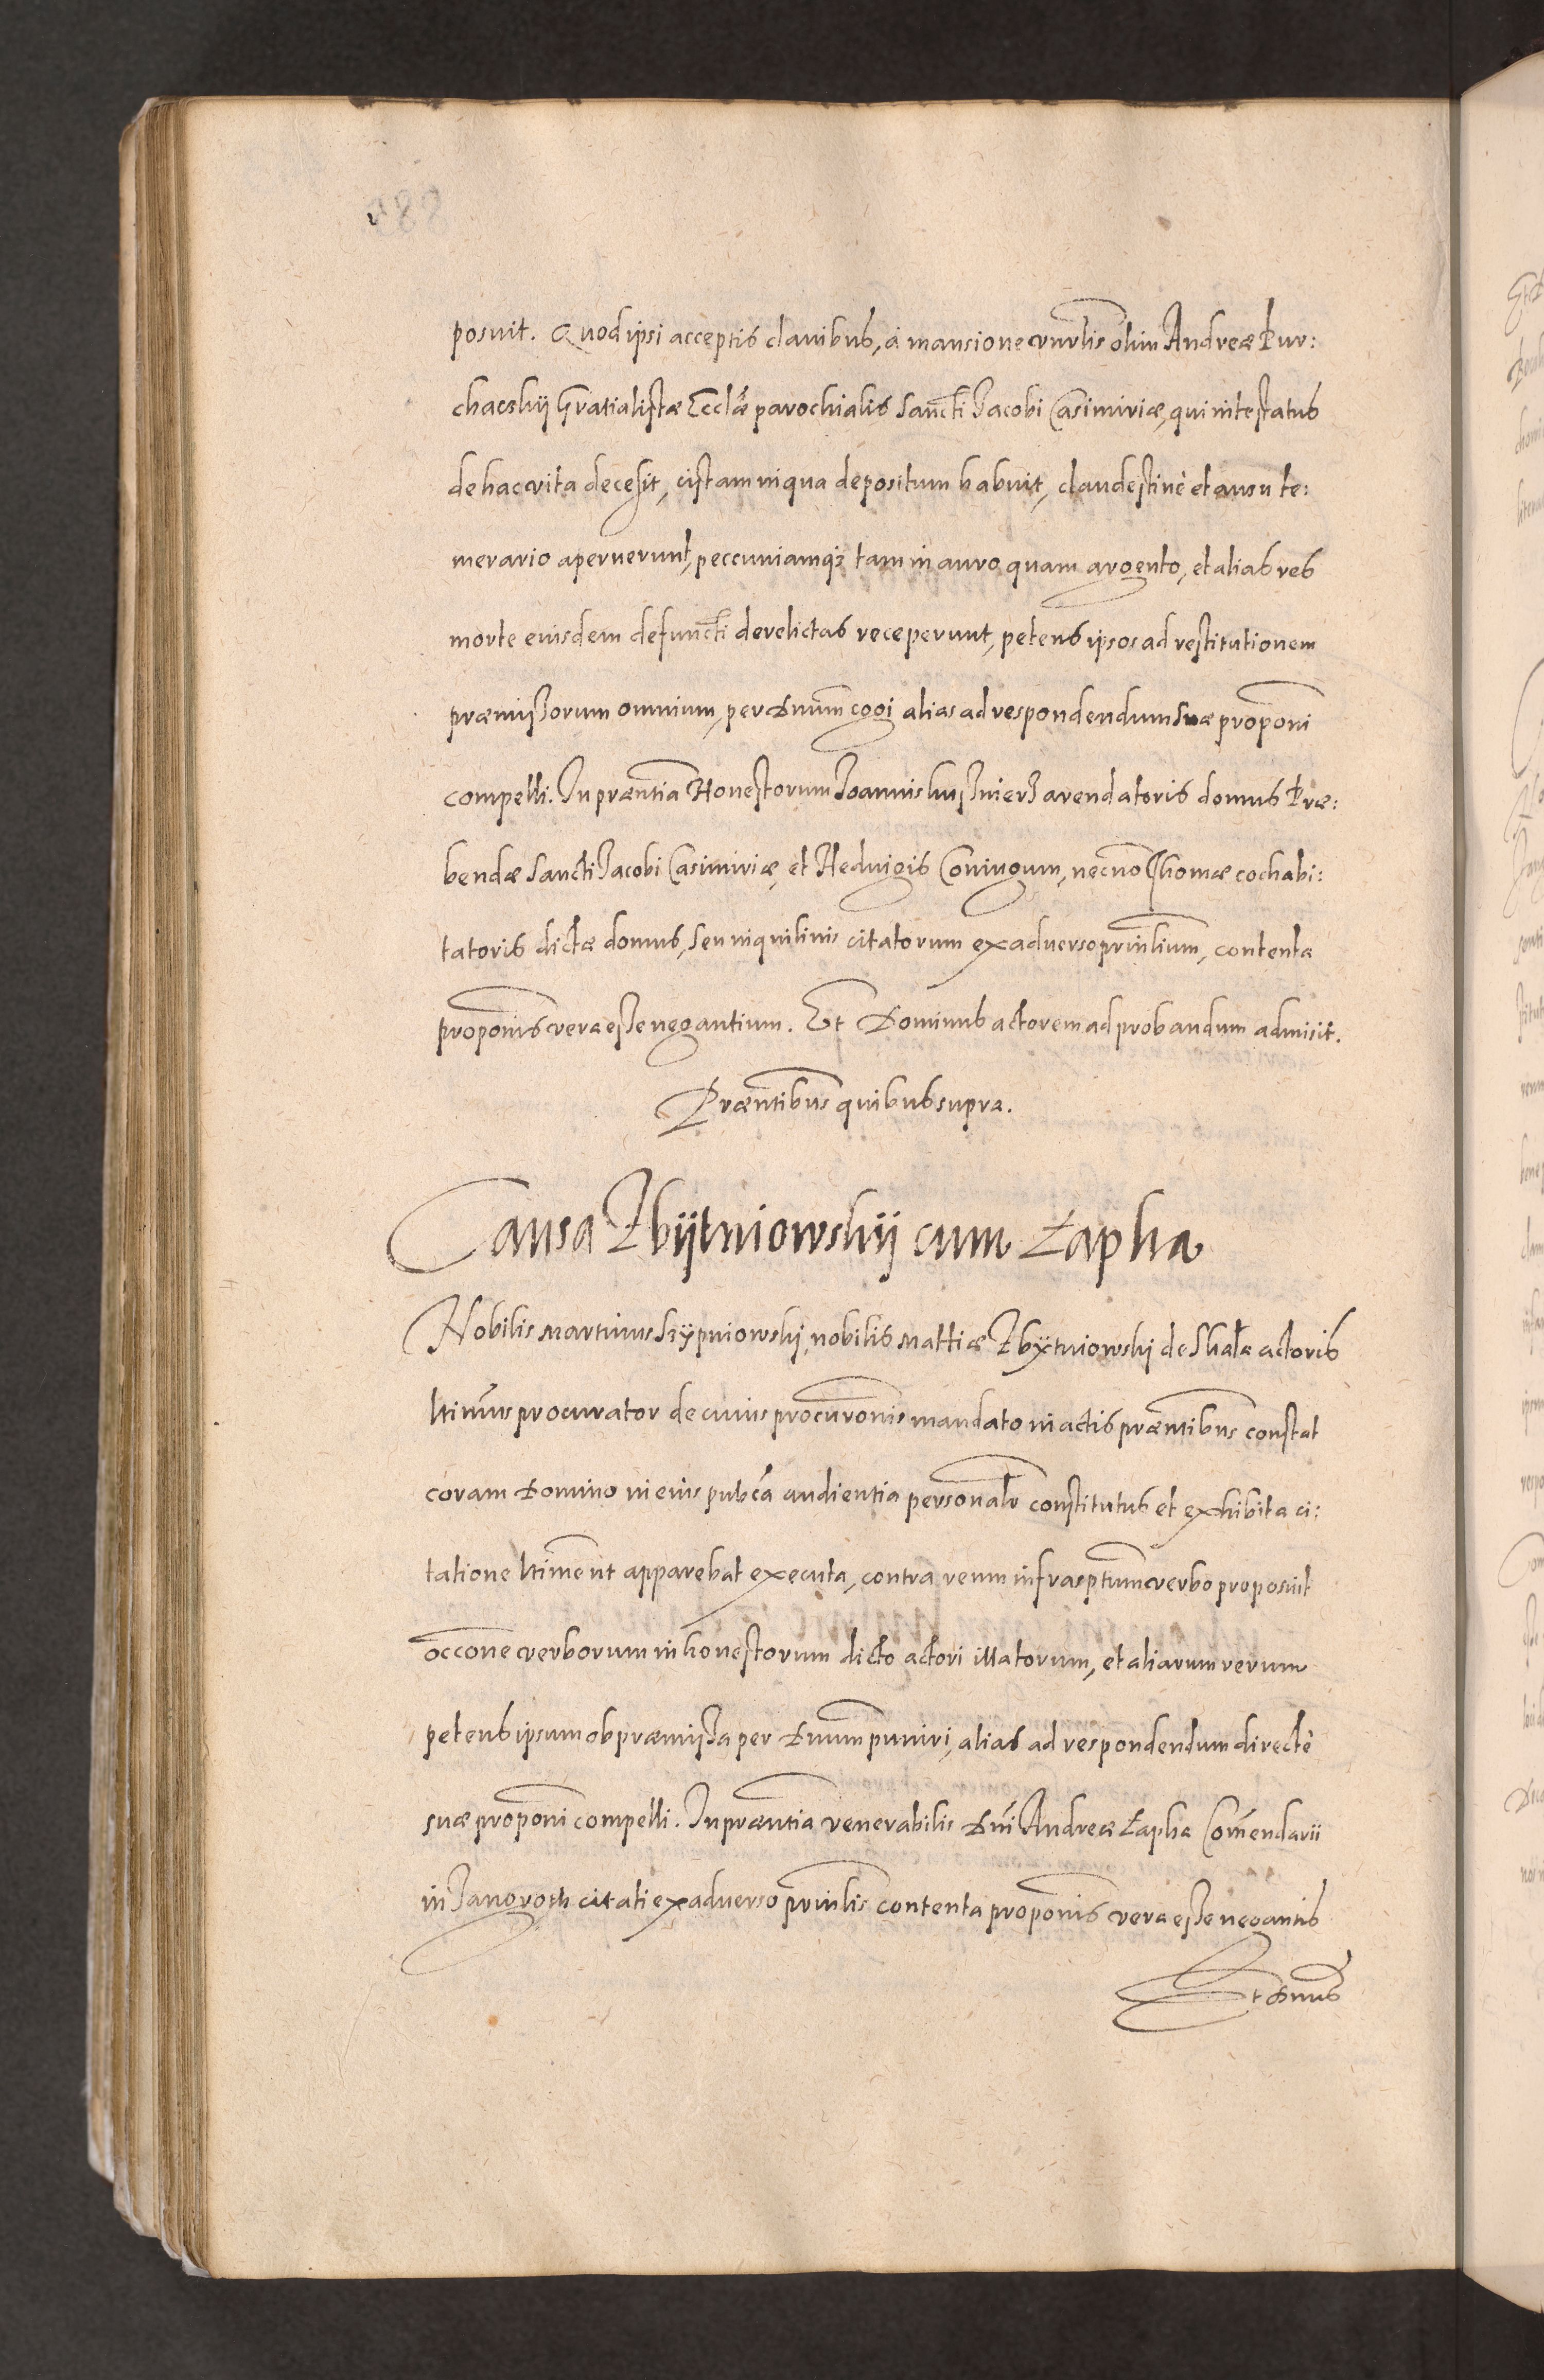 posuit. Quod ipsi acceptis clauibus, à mansione vnrlis olim Andreæ Pur:
chacskij Gratialistæ Ecclæ parochialis Sancti Jacobi Casimiriæ, qui intestatus
de hac vita decessit, cistam in qua depositum habuit, clandestinè et ausu te:
merario aperuerunt, peccuniamqз tam in auro quam argento, et alias res
morte eiusdem defuncti derelictas receperunt, petens ipsos ad restitutionem
præmissorum omnium, per Dnum cogi alias ad respondendum suæ proponi
compelli. In præntia Honestorum Joannis arendatoris domus Præ:
bendæ Sancti Jacobi Casimiriæ, et Heduigis Coniugum, necno Thomæ cochabi:
tatoris dictæ domus, seu inquilinis citatorum ex aduerso prinlium, contenta
proponis vera esse negantium. Et Dominus actorem ad probandum admisit.
Præntibus quibus supra.
Causa Zbijtniowskij cum Łapka
Nobilis Martinus Szÿpniowskj, nobilis Mattiæ Zbÿtniowskj de Skała actoris
ltimus procurator de cuius procuronis mandato in actis præntibus constat
coram Domino in eius pubca audientia personalr constitutus et exhibita ci:
tatione ltime ut apparebat executa, contra reum infrasptum verbo proposuit
occone verborum inhonestorum dicto actori illatorum, et aliarum rerum
petens ipsum ob præmissa per Dnum puniri, alias ad respondendum directè
suæ proponi compelli. In præntia venerabilis Dni Andreæ Łapka Comendarii
in citati ex aduerso prinlis contenta proponis vera esse negantis
Et Dnus